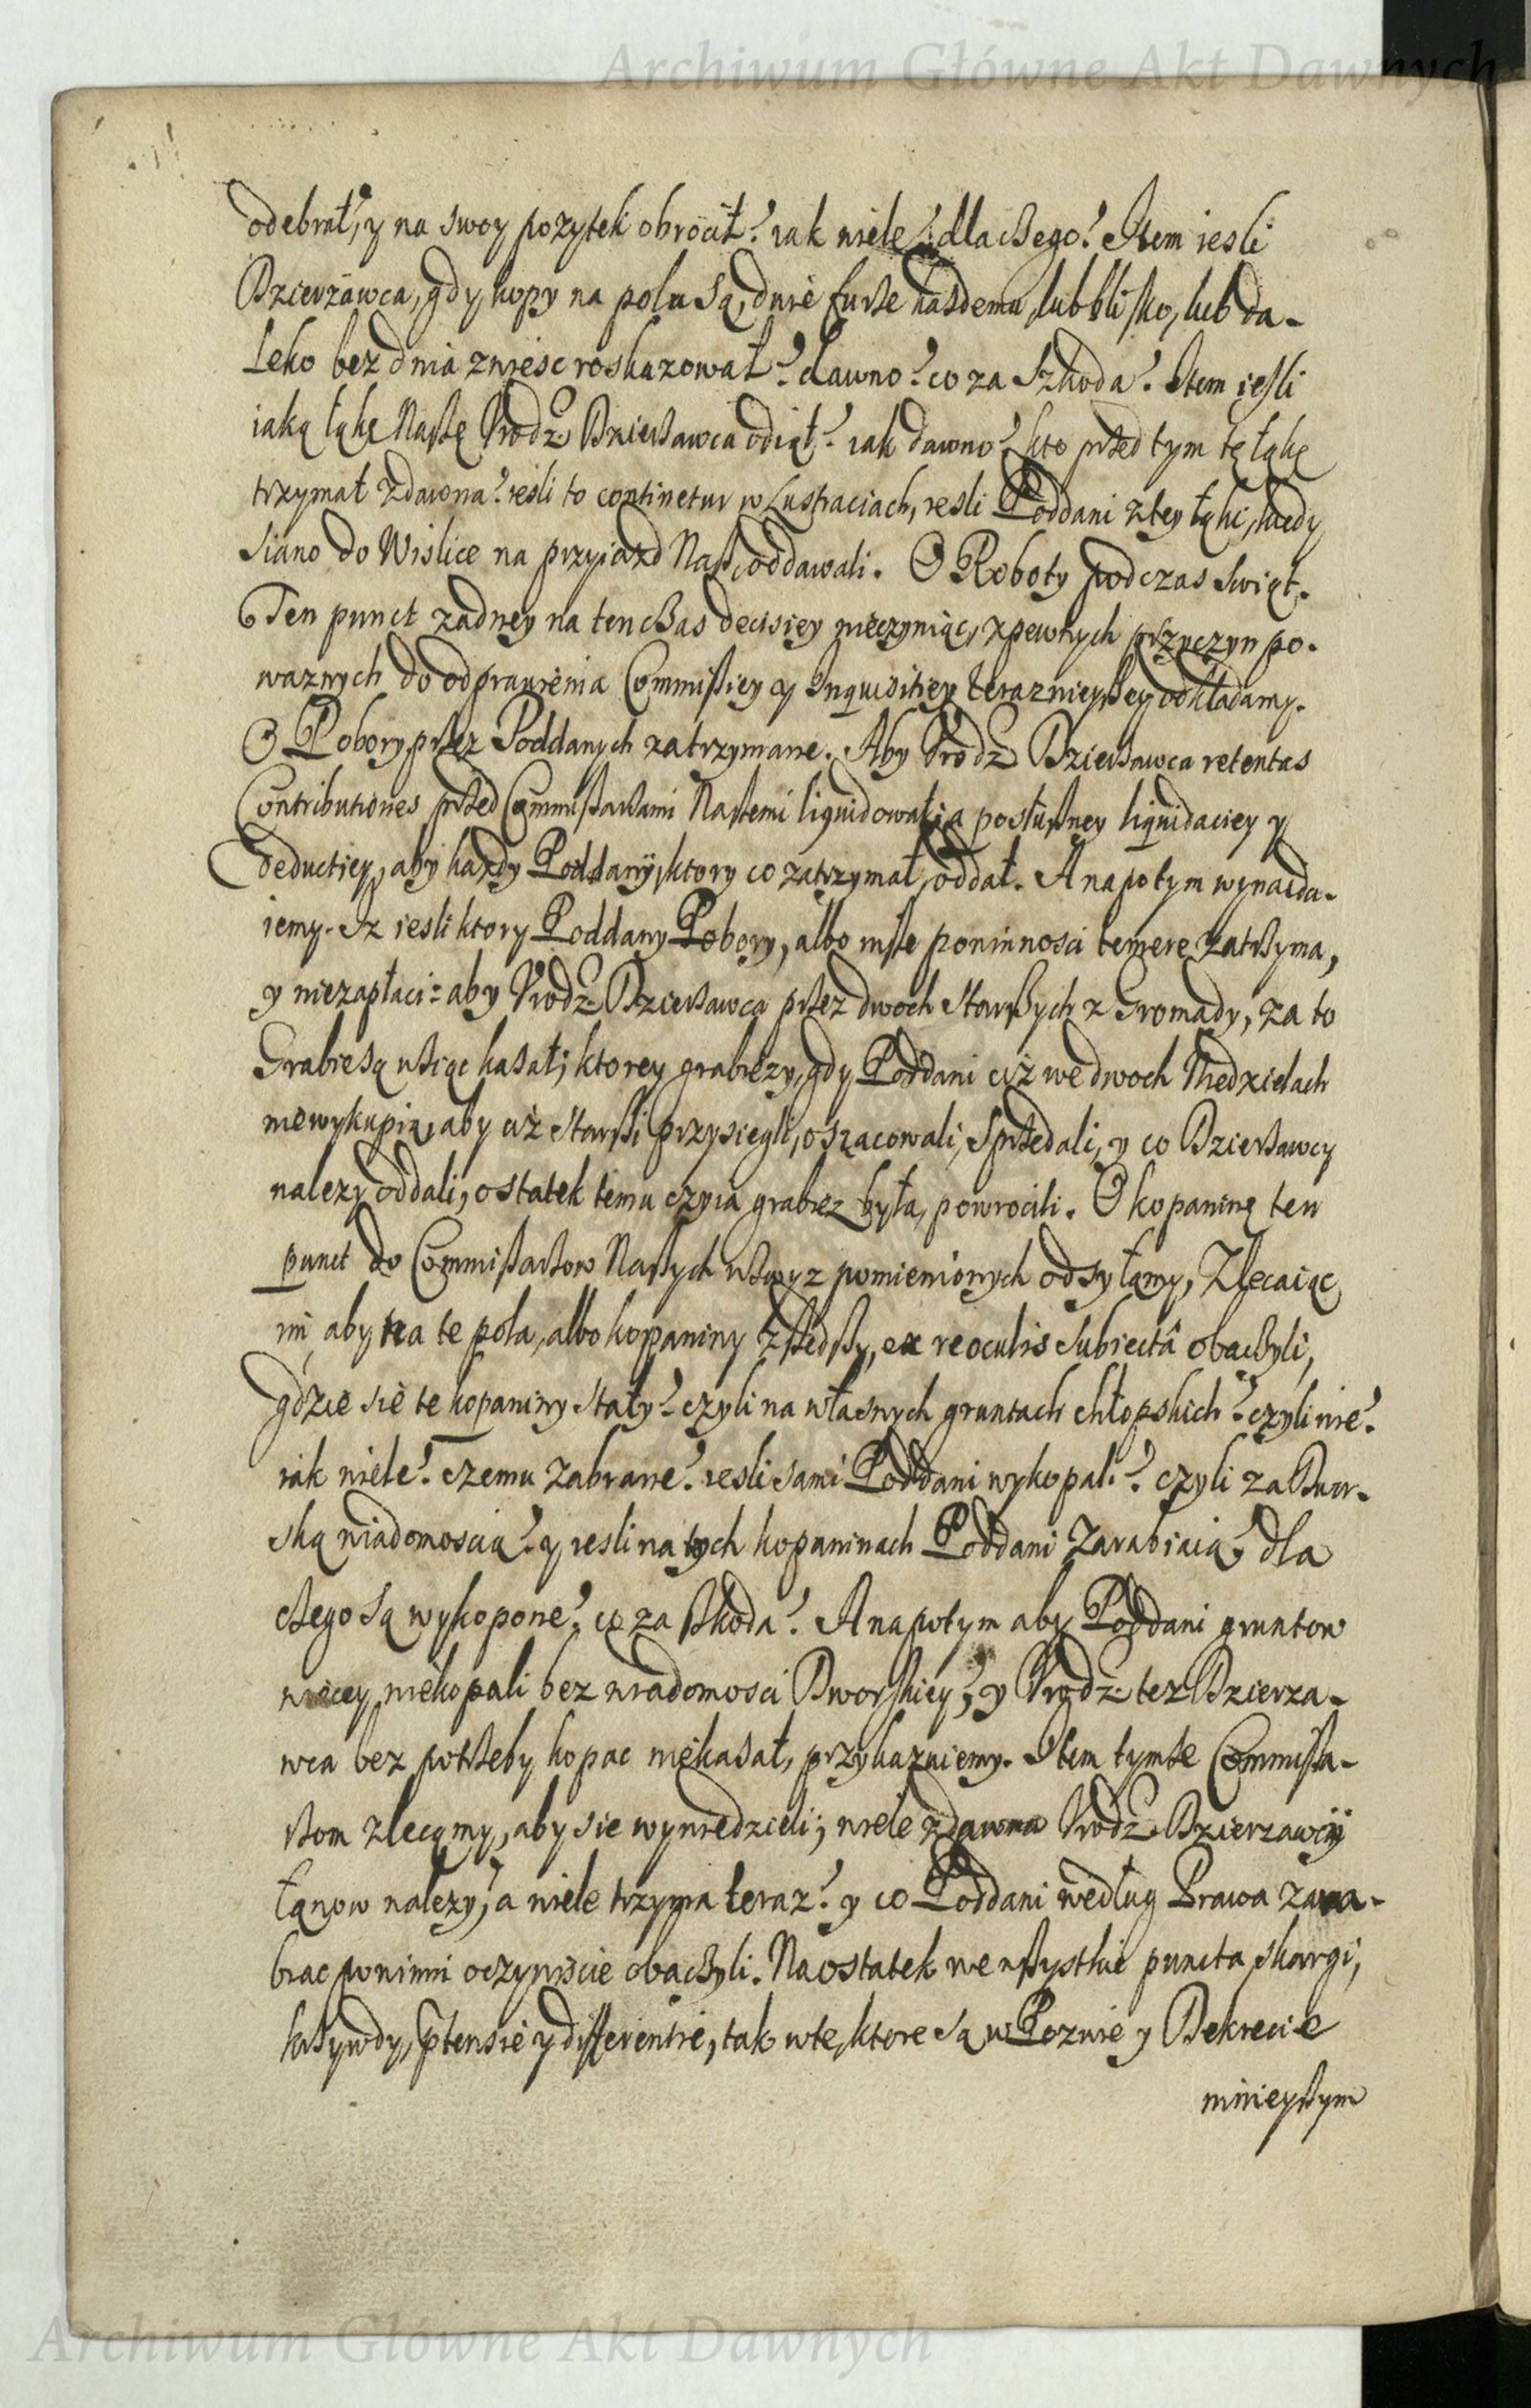 Archiwum Główne Akt Dawnych
odebrał, y na swoy pozytek obrocił? iak wiele? dla czego? Item iesli
Dzierzawca, gdy kopy na polu są, dwie furze kazdemu, lub blisko, lub da-
leko bez dnia zwiesc roskazował? dawno? co za szkoda? Item iesli
iaką łąkę Naszę Vrodz Dzierzawca odiął? iak dawno? kto przed tym tę łąkę
trzymał zdawna? iesli to continetur w Lustraciach, iesli Poddani z tey łąki, kiedy
siano do Wislice na przyiazd Nasz, oddawali. O Roboty podczas swiąt.
Ten punct zadney na ten czas decisiey nieczyniąc, z pewnych przyczyn po-
waznych do odprawienia Commissiey y Inquisitiey teraznieyszey odkładamy.
O Pobory przez Poddanych zatrzymane. Aby Vrodz Dzierzawca retentas
Contributiones przed Commissarzami Naszemi liquidował, a po słuszney liquidaciey y
deductiey, aby kazdy Poddany, ktory co zatrzymał, oddał. A napotym wynayda-
iemy. Iz iesli ktory Poddany Pobory, albo insze powinnosci temere zatrzyma,
y niezapłaci: aby Vrodz Dzierzawca przez dwoch starszych z Gromady, za to
Grabieszą wsiąc kazał; ktorey grabiezy, gdy Poddani ciż we dwoch Niedzielach
niewykupią, aby ciż starszi przysiegli, oszacowali, sprzedali, y co Dzierzawcy
nalezy oddali, ostatek temu czyia grabiez była, powrocili. O kopaninę ten
punct do Commissarzow Naszych wzwyz pomienionych odsyłamy, Zlecaiąc
im, aby na te pola, albo kopaniny zszedszy, ex re oculis subiectâ obaczyli,
gdzie sie te kopaniny stały? czyli na własnych gruntach chłopskich? czyli nie?
iak wiele? czemu zabrane? iesli sami Poddani wykopali? czyli za Dwor-
ską wiadomoscią? y iesli na tych kopaninach Poddani zarabiaią? dla
czego są wykopone? co za szkoda? A napotym aby Poddani gruntow
wiecey niekopali bez wiadomosci Dworskiey, y Vrodz tez Dzierza-
wca bez potrzeby kopac niekazał, przykazuiemy. Item tymze Commissa-
rzom zlecamy, aby sie wywiedzieli; wiele zdawna Vrodz Dzierzawcy
łanow nalezy, a wiele trzyma teraz? y co Poddani według Prawa zara-
biac powinni oczywiscie obaczyli. Na ostatek we wszystkie puncta skargi,
krzywdy, ptensie y differentie, tak w te, ktore są w Pozwie y Dekrecie
ninieyszym
Archiwum Główne Akt Dawnych